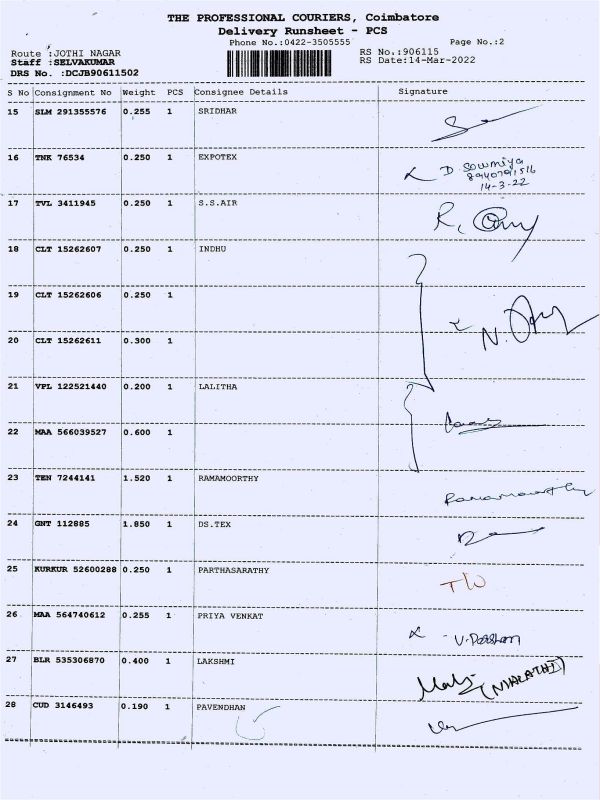 THE PROFESSIONAL COURIERS, Coimbatore
Delivery Runsheet - PCS
Phone No.:0422-3505555 Page No.:2
Route :JOTHI NAGAR RS No.:906115
Staff :SELVAKUMAR RS Date:14-Mar-2022
DRS No. :DCJB90611502
S No Consignment No Weight PCS Consignee Details Signature
15 SLM 291355576 0.255 1 SRIDHAR
16 TNK 76534 0.250 1 EXPOTEX D. Sowmiya
8940791516
14-3-22
17 TVL 3411945 0.250 1 S.S.AIR R.
18 CLT 15262607 0.250 1 INDHU
19 CLT 15262606 0.250 1
N.
20 CLT 15262611 0.300 1
21 VPL 122521440 0.200 1 LALITHA
22 MAA 566039527 0.600 1
23 TEN 7244141 1.520 1 RAMAMOORTHY Ramamoorthy
24 GNT 112885 1.850 1 DS.TEX
25 KURKUR 52600288 0.250 1 PARTHASARATHY
26 MAA 564740612 0.255 1 PRIYA VENKAT
27 BLR 535306870 0.400 1 LAKSHMI (MALATHI)
28 CUD 3146493 0.190 1 PAVENDHAN